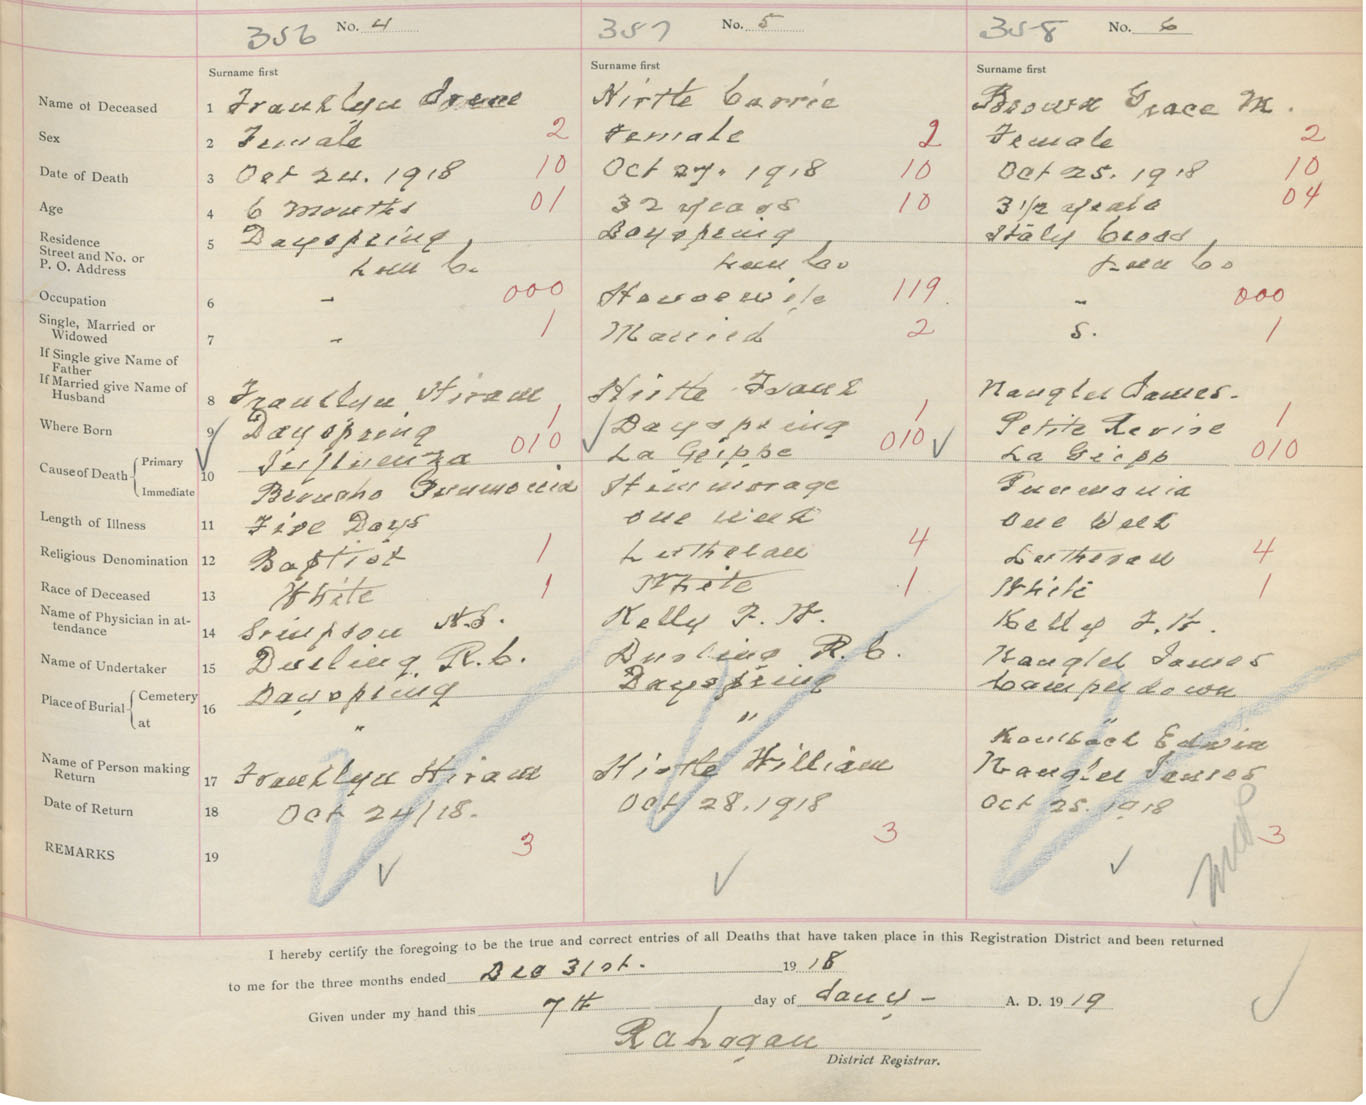 356 No. 4 357 No. 5 358 No. 6
Surname first Surname first Surname first
Name of Deceased 1 Franklyn Irene Hirtle Carrie Brown Grace M.
Sex 2 Female 2 Female 2 Female 2
Date of Death 3 Oct 24. 1918 10 Oct 27. 1918 10 Oct 25. 1918 10
Age 4 6 months 01 32 years 10 3 1/2 years 04
Residence
Street and No. or
P. O. Address 5 Dayspring, Dayspring, Italy Cross,
Lun Co. Lun Co Lun Co
Occupation 6 - 000 Housewife 119 - 000
Single, Married or
Widowed 7 - 1 Married 2 S. 1
If Single give Name of
Father
If Married give Name of
Husband 8 Franklyn Hiram Hirtle Frank Naugler James.
Where Born 9 Dayspring 1 Dayspring 1 Petite Revise 1
Cause of Death Primary 10 Influenza 010 La Grippe 010 La Gripp 010
Immediate Broncho Pnumonia Himmorage Punmonia
Length of Illness 11 Five Days one week one Week
Religious Denomination 12 Baptist 1 Lutheran 4 Lutheran 4
Race of Deceased 13 White 1 White 1 White 1
Name of Physician in at-
tendance 14 Simpson N.S. Kelly F. H. Kelly F. H.
Name of Undertaker 15 Durling R. C. Durling R. C. Naugler James
Place of Burial Cemetery 16 Dayspring Dayspring Camperdown
at " "
Koulbach Edwin
Name of Person making
Return 17 Franklyn Hiram Hirtle William Naugler James
Date of Return 18 Oct 24/18. Oct 28. 1918 Oct 25. 1918
REMARKS 19 3 3 3
I hereby certify the foregoing to be the true and correct entries of all Deaths that have taken place in this Registration District and been returned
to me for the three months ended Dec 31st. 1918
Given under my hand this 7th day of Jany - A. D. 1919
R A Logan
District Registrar.